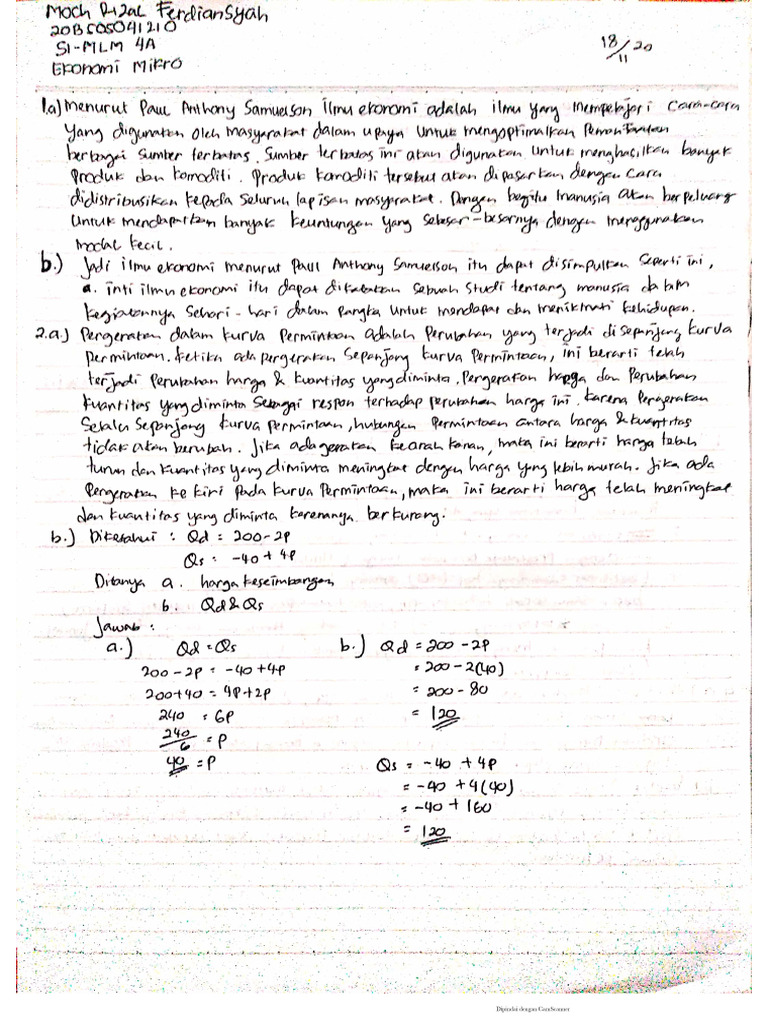 Moch Rizal Ferdiansyah
20B505041210
S1-MLM 4A
Ekonomi Mikro
18/11 20
1.a) Menurut Paul Anthony Samuelson ilmu ekonomi adalah ilmu yang mempelajari cara-cara
yang digunakan oleh masyarakat dalam upaya untuk mengoptimalkan Pemanfaatan
berbagai sumber terbatas. Sumber terbatas ini akan digunakan untuk menghasilkan banyak
Produk dan komoditi. Produk komoditi tersebut akan dipasarkan dengan cara
didistribusikan kepada seluruh lapisan masyarakat. Dengan begitu manusia akan berpeluang
untuk mendapatkan banyak keuntungan yang sebesar-besarnya dengan menggunakan
modal kecil.
b.) Jadi ilmu ekonomi menurut Paul Anthony Samuelson itu dapat disimpulkan seperti ini,
a. inti ilmu ekonomi itu dapat dikatakan sebuah studi tentang manusia dalam
kegiatannya sehari-hari dalam rangka untuk mendapat dan menikmati kehidupan.
2.a.) Pergerakan dalam kurva Permintaan adalah Perubahan yang terjadi disepanjang kurva
permintaan. ketika ada pergerakan sepanjang kurva Permintaan, ini berarti telah
terjadi Perubahan harga & kuantitas yang diminta. Pergerakan harga dan Perubahan
kuantitas yang diminta sebagai respon terhadap perubahan harga ini. Karena Pergerakan
selalu sepanjang kurva permintaan, hubungan Permintaan antara harga & kuantitas
tidak akan berubah. Jika ada gerakan kearah kanan, maka ini berarti harga telah
turun dan kuantitas yang diminta meningkat dengan harga yang lebih murah. Jika ada
Pergerakan ke kiri pada kurva Permintaan, maka ini berarti harga telah meningkat
dan kuantitas yang diminta karenanya berkurang.
b.) Diketahui : Qd = 200-2P
Qs = -40+4P
Ditanya a. harga keseimbangan
b. Qd & Qs
Jawab :
a.) Qd = Qs
200-2P = -40+4P
200+40 = 4P+2P
240 = 6P
240/6 = P
40 = P
b.) Qd = 200-2P
= 200-2(40)
= 200-80
= 120
Qs = -40 + 4P
= -40 + 4(40)
= -40 + 160
= 120
Dipindai dengan CamScanner